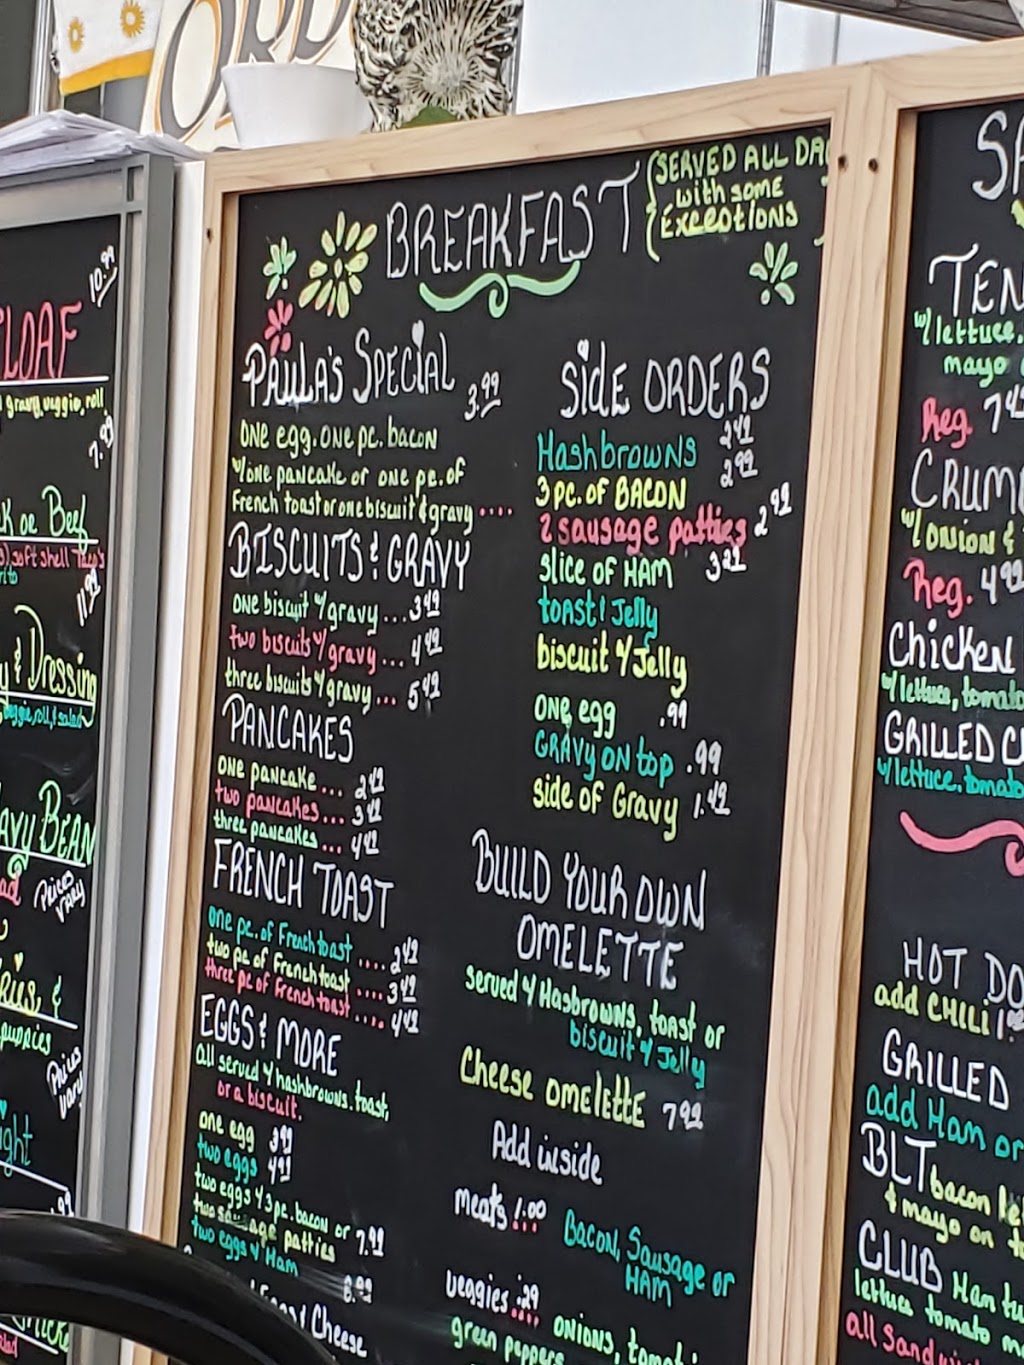 ORD
10.99
LOAF
gravy, veggie, roll
7.99
k or Beef
soft shell Taco's
11.99
y & Dressing
veggie, roll, & salad
avy BEAN
Prices
vary
Prices
vary
ight
BREAKFAST
SERVED ALL DA
with some
EXCEOTIONS
PAULA'S SPECIAL 3.99
ONE egg. ONE pc. bacon
w/one pancake or one pc. of
French toast or one biscuit & gravy ....
BISCUITS & GRAVY
ONE biscuit w/gravy ... 3.49
two biscuits w/gravy ... 4.49
three biscuits w/gravy ... 5.49
PANCAKES
ONE pancake ... 2.49
two pancakes ... 3.49
three pancakes ... 4.49
FRENCH TOAST
ONE pc. of French toast .... 2.49
two pc of French toast .... 3.49
three pc of French toast .... 4.49
EGGS & MORE
all served w/hashbrowns. toast,
or a biscuit.
ONE egg 3.49
two eggs 4.49
two eggs w/3pc. bacon or 7.99
two sausage patties
two eggs w/ Ham 8.99
Cheese
SIDE ORDERS
Hashbrowns 2.49
3 pc. of BACON 2.99
2 sausage patties 2.99
slice of HAM 3.29
toast & Jelly
biscuit w/Jelly
ONE egg .99
GRAVY ON top .99
side of Gravy 1.49
BUILD YOUR OWN
OMELETTE
served w/Hasbrowns, toast or
biscuit w/ Jelly
Cheese omelette 7.99
Add inside
meats 1.00 Bacon, Sausage or
HAM
veggies .29 ONIONS,
green peppers
SA
TEN
w/lettuce,
mayo
Reg. 7.4
CRUM
w/ONION &
Reg. 4.99
Chicken
w/lettuce, tomato
GRILLED C
w/lettuce. tomato
HOT DO
add CHILI 1.00
GRILLED
add Ham or
BLT bacon le
& mayo on t
CLUB Ham tu
lettuce tomato m
all Sandwi